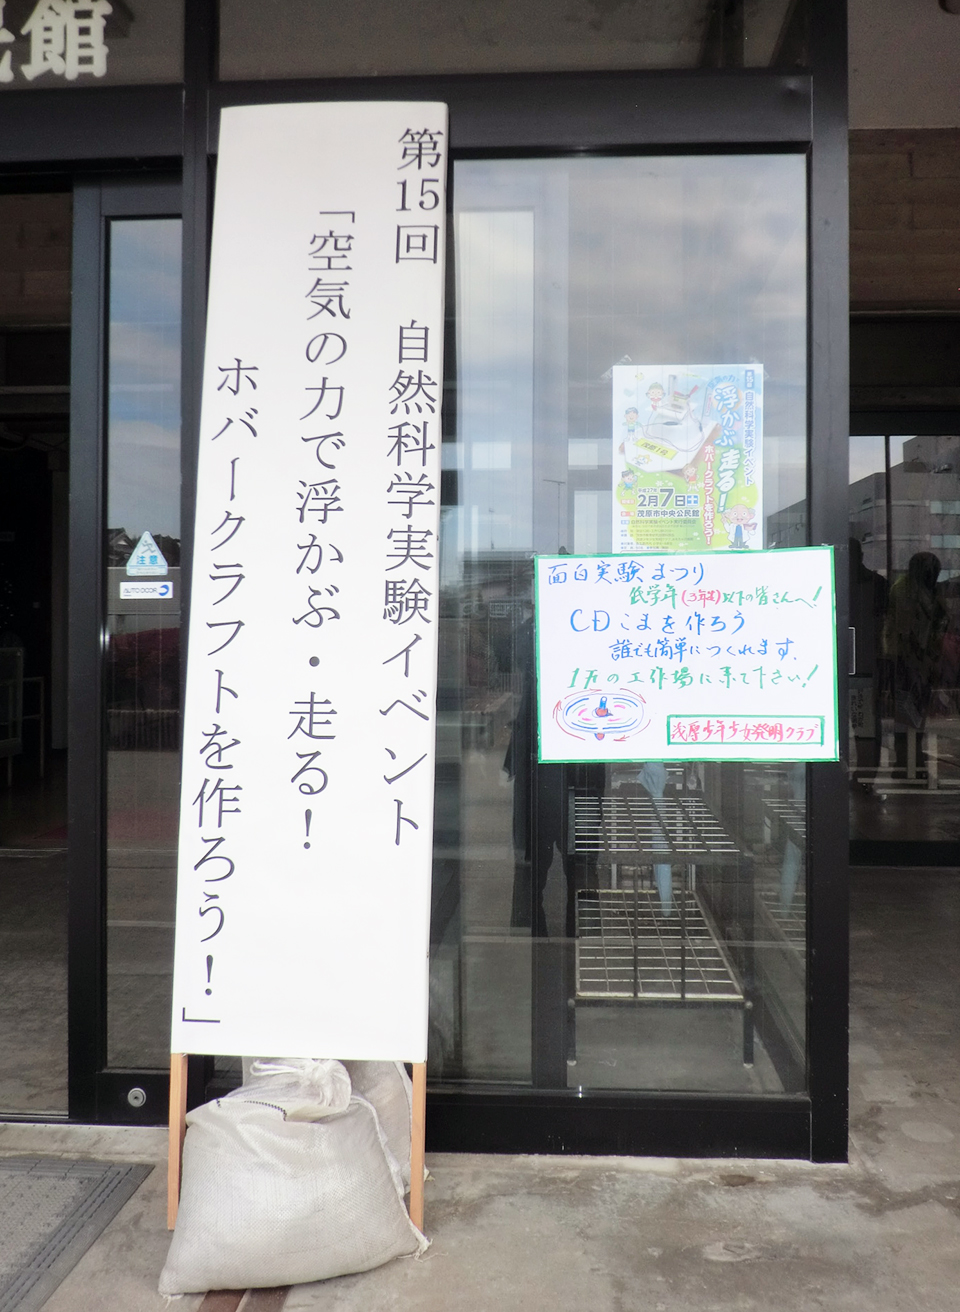 館
第15回　自然科学実験イベント
「空気の力で浮かぶ・走る！
ホバークラフトを作ろう！」
自然科学実験イベント
浮かぶ走る！
ホバークラフトを作ろう！
平成27年
2月7日土
茂原市中央公民館
注意
AUTO DOOR
面白実験まつり
低学年(3年生)以下の皆さんへ！
CDこまを作ろう
誰でも簡単につくれます。
1Fの工作場に来て下さい！
茂原少年少女発明クラブ